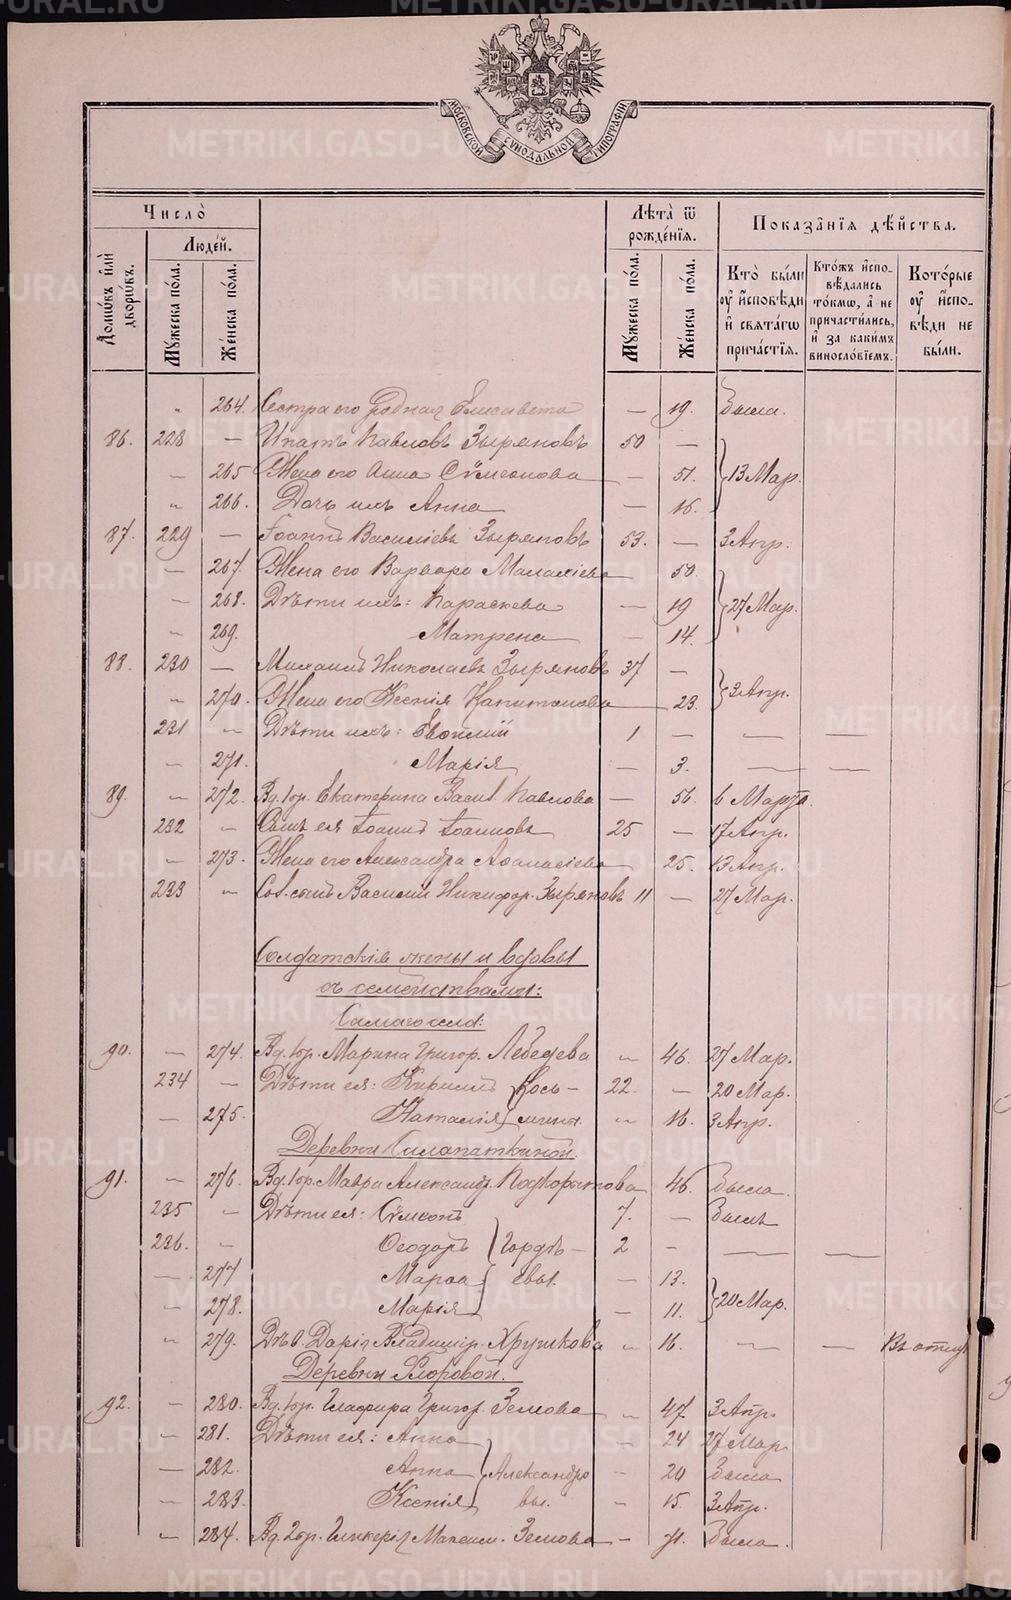 МОСКОВСКОЙ СѴНОДАЛЬНОЙ ТИПОГРАФІИ
Число̀
Домѡвъ и҆лѝ дворѡвъ.
Люде́й.
Мꙋ́жеска по́ла.
Же́нска по́ла.
Лѣ́та ѿ рожде́нїѧ.
Мꙋ́жеска по́ла.
Же́нска по́ла.
Показа̑нїѧ дѣ́йства.
Кто̀ бы́ли ᲂу҆ и҆́сповѣди и҆ свѧта́гѡ прича́стїѧ.
Кто́жъ и҆спо-вѣ́дались то́кмѡ, а҆ не причасти́лись, и҆ за каки́мъ винослѡ́вїемъ.
Кото́рые ᲂу҆ и҆́спо-вѣди не бы́ли.
" 264. Сестра его родная Елисавета — 19. Была.
86. 228 — Ипатъ Павловъ Зыряновъ 50 —
— 265 Жена его Анна Сѵмеонова — 51. } 13 Мар.
" 266. Дочь ихъ Анна — 16.
87. 229 — Іоаннъ Василіевъ Зыряновъ 53. — 3 Апр.
— 267. Жена его Варвара Малахіева — 50.
— 268. Дѣти ихъ: Параскева — 19 } 27 Мар.
" 269. Матрена — 14.
88. 230 — Михаилъ Николаевъ Зыряновъ 37 —
" 270. Жена его Ксенія Капитонова — 23. } 3 Апр.
231 " Дѣти ихъ: Евѳимій 1 — — —
— 271. Марія — 3. — —
89. " 272. Вд. Гор. Екатерина Васил. Павлова — 56. 6 Марта.
232 " Сынъ ея Іоаннъ Іоанновъ 25 — 17 Апр.
— 273. Жена его Александра Аѳанасіева — 25. 13 Апр.
233 " Василій Никифор. Зыряновъ 11 — 27 Мар.
Солдатскія жены и вдовы
съ семействами:
Самаго села:
90. — 274. Вд. Гор. Марина Григор. Лебедева " 46. 27 Мар.
234 — Дѣти ея: Кириллъ } Кось- 22. — 20 Мар.
— 275. Наталія } мины. " 16. 3 Апр.
Деревни
91. " 276. Вд. Гор. Мавра Александр. Подкорытова 46. Была.
235 " Дѣти ея: Сѵмеонъ 7. — Былъ
236. " Ѳеодоръ } Гордѣ- 2 — — —
— 277 Марѳа } евы. — 13.
— 278. Марія — 11. } 20 Мар.
" 279. Дарія Владимір. Хрушкова " 16. — — Въ отлуч.
Деревни
92. — 280. Вд. Гор. Глафира Григор. Земова " 47. 3 Апр.
— 281. Дѣти ея: Анна — 24 27 Мар.
— 282. Анна } Александро — 20 Была
— 283. Ксенія } вы. — 15. 3 Апр.
" 284. Вд. Гор. Гликерія Максим. Земова — 71. Была.
METRIKI.GASO-URAL.RU